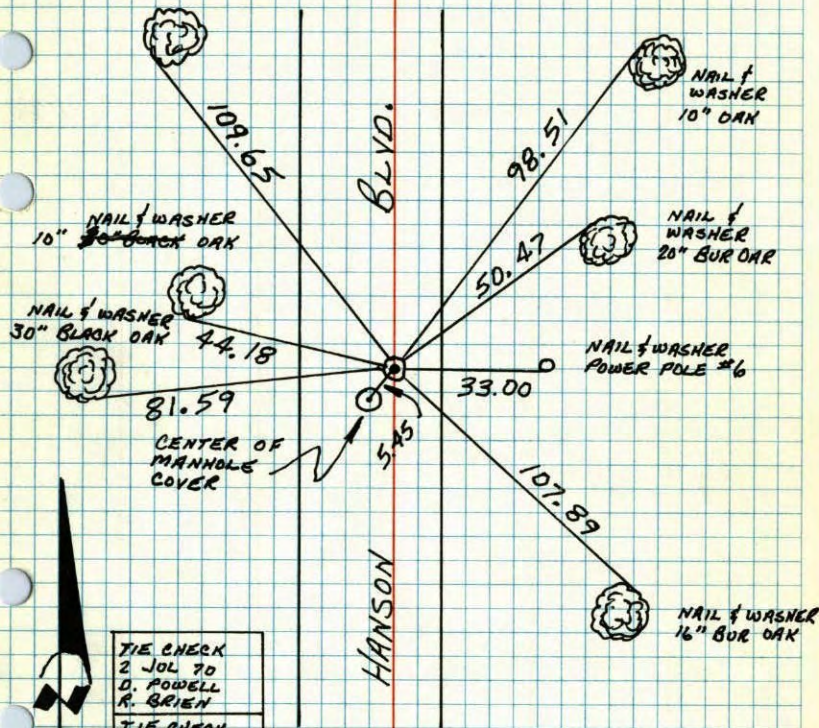 109.65
BLVD.
98.51
NAIL &
WASHER
10" OAK
NAIL & WASHER
10" OAK
50.47
NAIL &
WASHER
20" BUR OAR
NAIL & WASHER
30" BLACK OAK
44.18
NAIL & WASHER
POWER POLE #6
33.00
81.59
CENTER OF
MANHOLE
COVER
5.45
107.89
HANSON
NAIL & WASHER
16" BUR OAK
TIE CHECK
2 JUL 70
D. POWELL
R. BRIEN
TIE CHECK